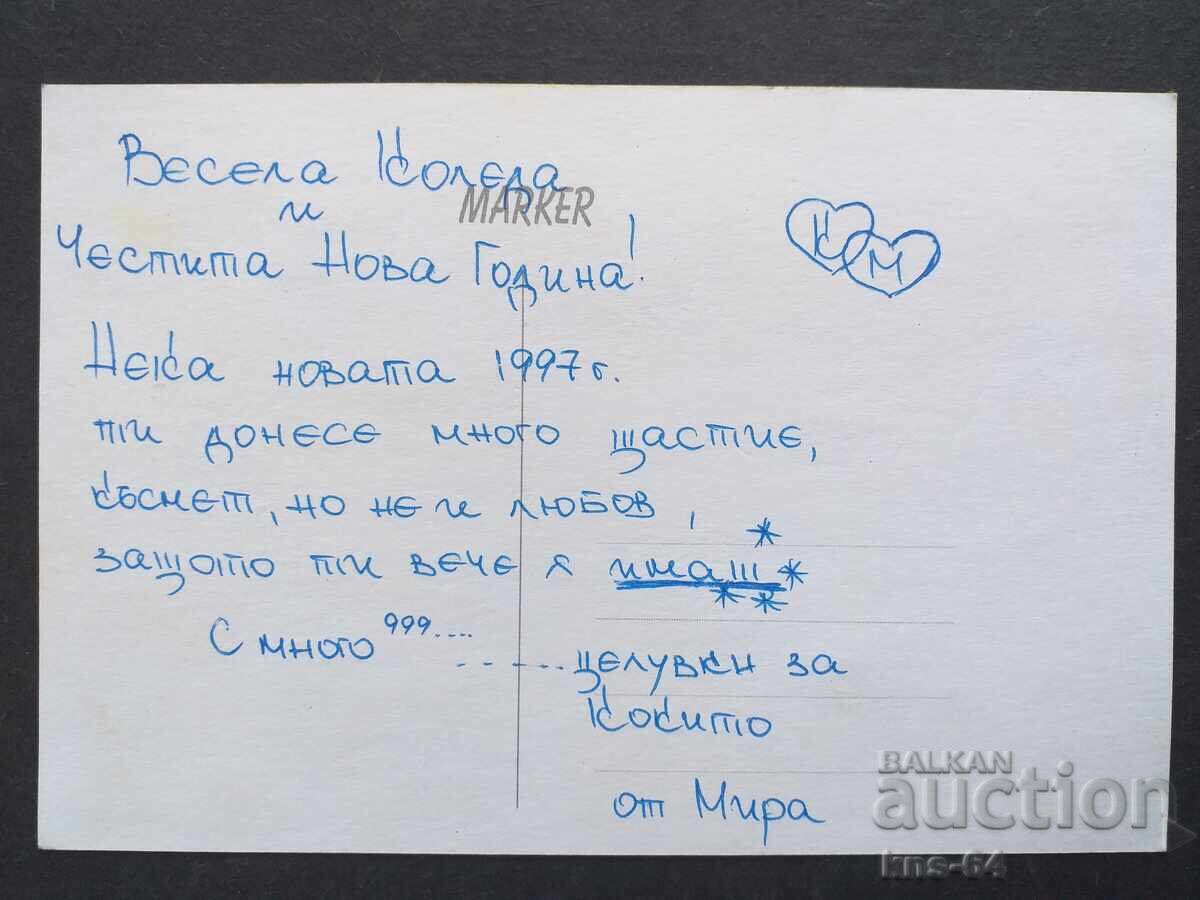 Весела Коледа
и
Честита Нова Година!
MARKER
К М
Нека новата 1997 г.
ти донесе много щастие,
късмет, но не и любов,
защото ти вече я имаш
С много 999....
- - - ......целувки за
Кокито
от Мира
BALKAN
auction
kns-64